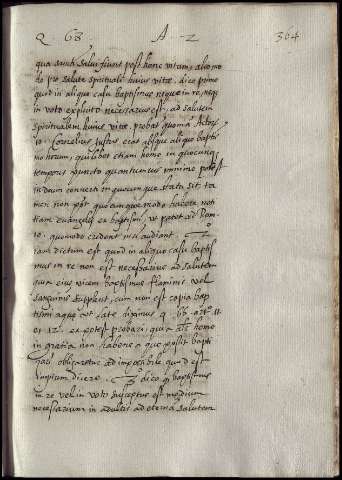 Q 68 A 2 364
qua sancti salvi fiunt post hanc vitam, alio mo
do pro salute spirituali huius vitæ. dico primo
quod in aliquo casu baptismus neque in re, neque
in voto explicito necesarius est, ad salutem
spiritualem huius vitæ. probat quoniam
Cornelius justus erat absque aliquo baptis
quilibet etiam homo in quocunque
temporis puncto quantumcunque minimo potest
in deum converti in quocunque statu sit ta
men non potest quocunque modo habere noti
tiam evangelii et baptismi, ut patet ad Rom.
10. quomodo credent nisi audiant.
iam dictum est quod in aliquo casu baptis
mus in re non est necesarius ad salutem
quia eius vicem baptismus flaminis vel
sanguinis supplent, cum non est copia bap
tismi aquæ, ut late diximus q. 66. art. 11
et 12. et potest probari, quia homo
in gratia non habens a quo possit bapti
zari obligaretur ad impossibile quod est
impium dicere. 3 dico quod baptismus
in re vel in voto susceptus est medium
necesarium in adultis ad eternam salutem